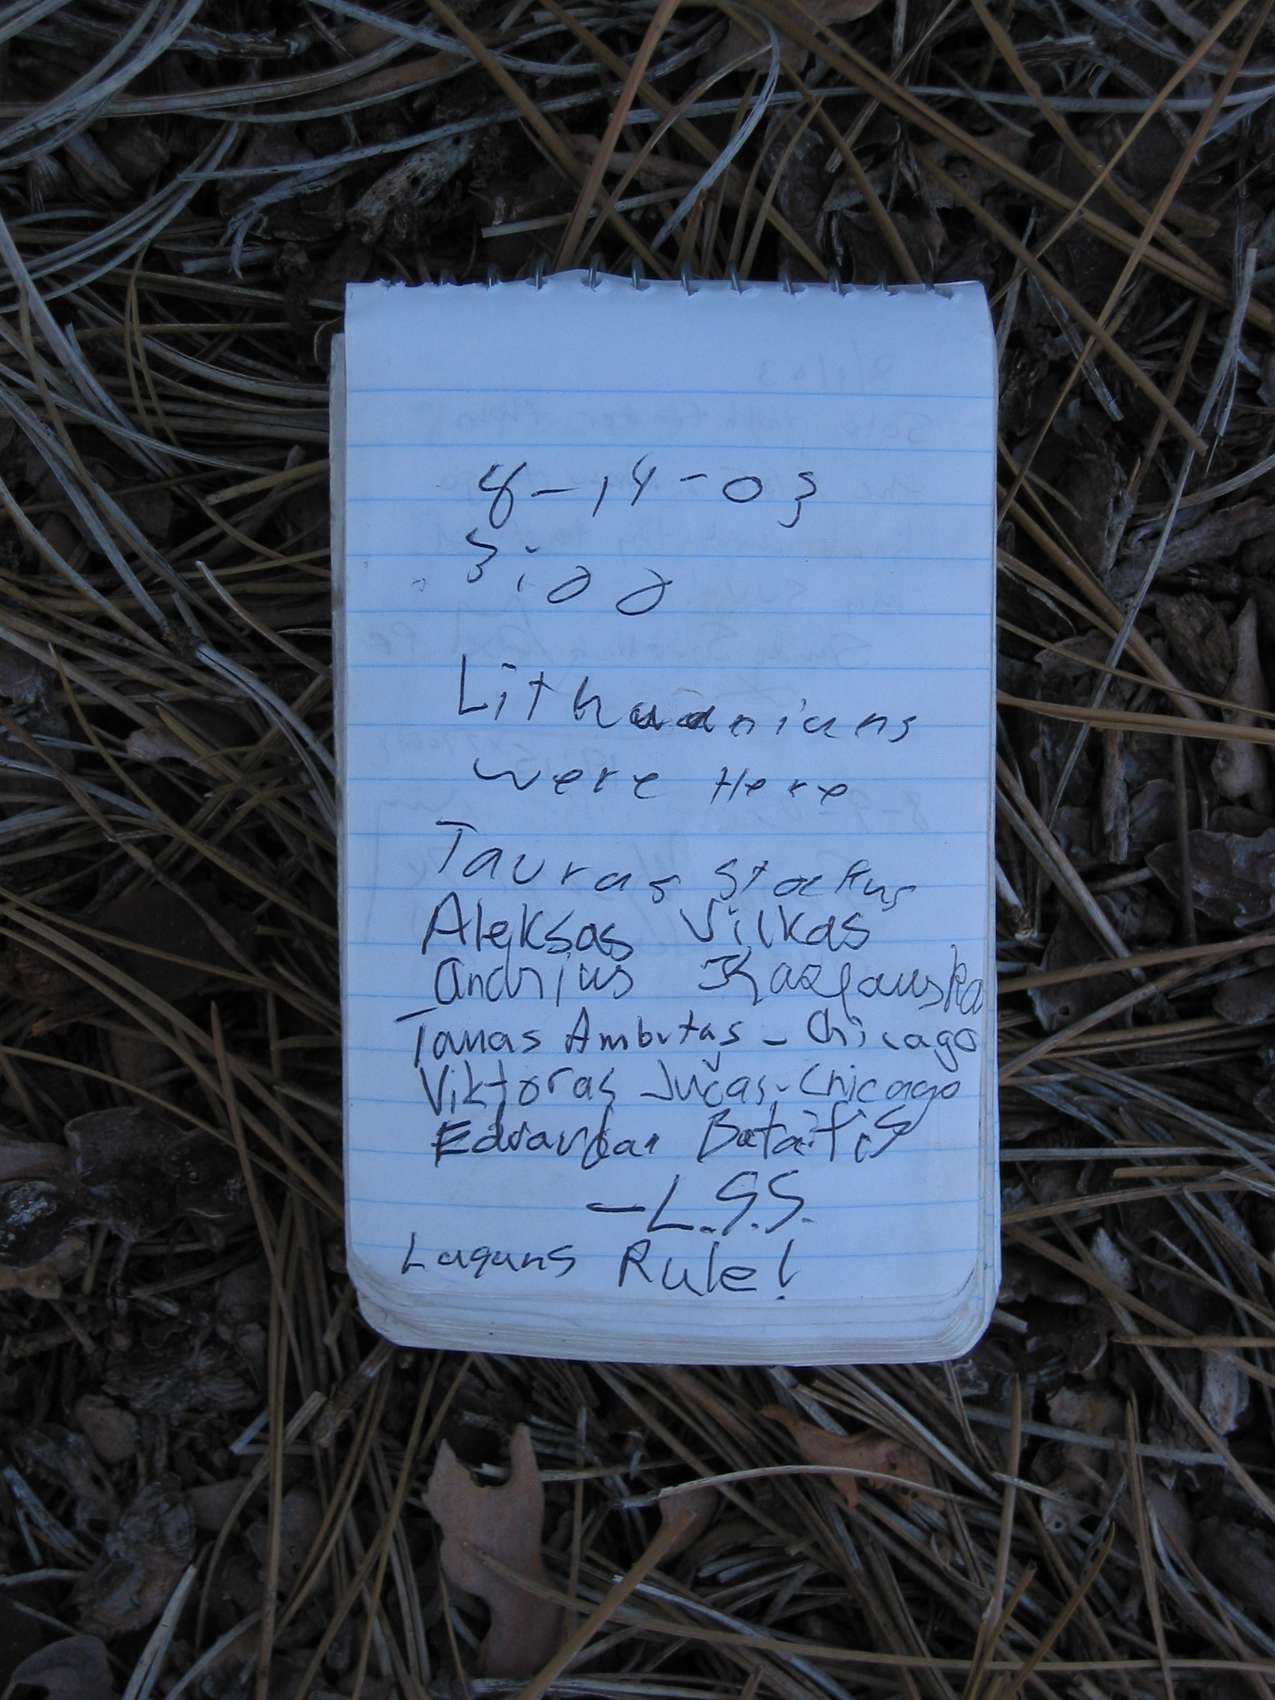 8-14-03
Lithuanians
were Here
Tauras Stackus
Aleksas Vilkas
Andrius Kazlauska
Tomas Ambutas - Chicago
Viktoras Jučas - Chicago
- L.S.S.
Rule!